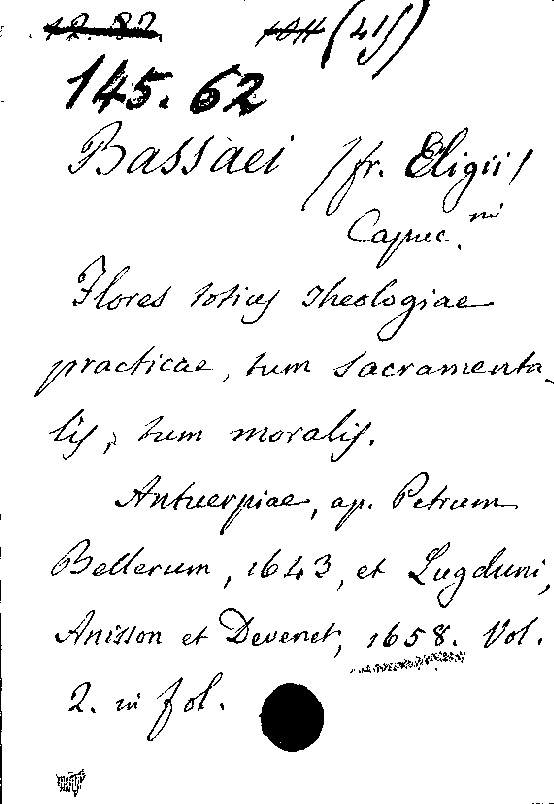 12.82. 1011 (415)
145.62
Bassaei /fr. Eligii/
Capuc.ni
Flores totius theologiae
practicae, tum sacramenta-
lis, tum moralis.
Antuerpiae, ap. Petrum
Bellerum, 1643, et Lugduni,
Anisson et Devenet, 1658. Vol.
2. in fol.